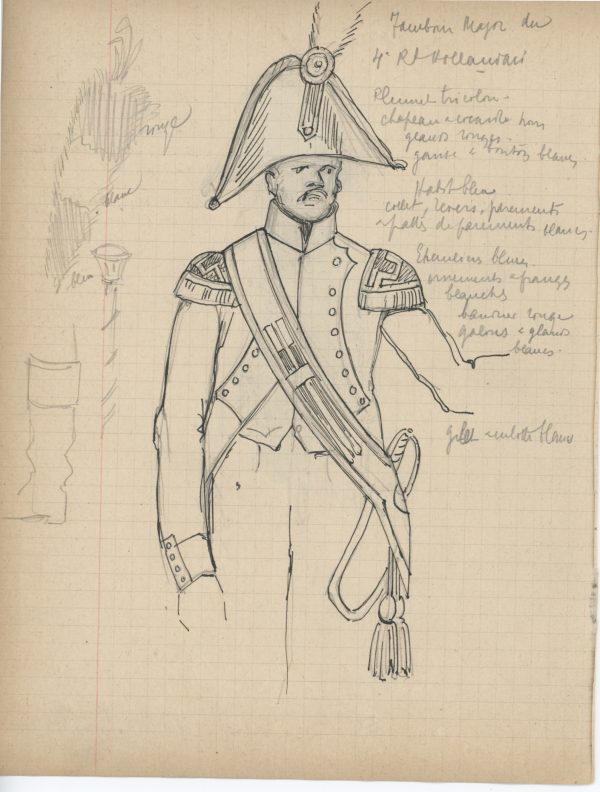 Tambour Major du
4e Rt Hollandais
Plumet tricolore
chapeau à cocarde noire
glands rouges.
ganse & boutons blancs
Habit bleu
collet, revers, parements
& pattes de parements blancs.
Epaulières bleues.
ornements & franges
blanches
baudrier rouge
galons & glands
blancs.
gilet & culotte blancs
rouge
blanc
bleu